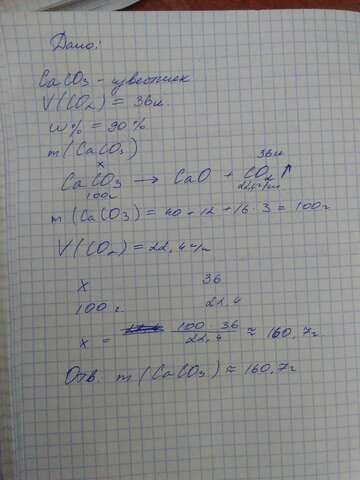 Дано:
CaCO3 - известняк
V(CO2) = 36л.
w% = 90%
m(CaCO3)
x 36л
CaCO3 → CaO + CO2↑
100г 22,4л/м
m(CaCO3) = 40 + 12 + 16 · 3 = 100г
V(CO2) = 22,4 л
x 36
100 г. 22,4
x = 100 · 36 / 22,4 ≈ 160,7г
Отв. m(CaCO3) ≈ 160,7г